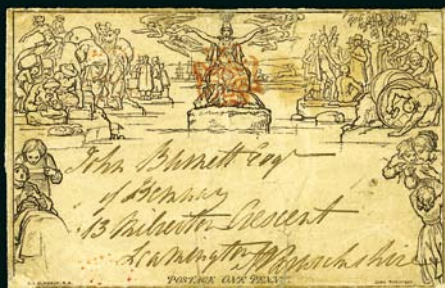 John Burnett Esqr
of
13 Milverton Crescent
Leamington Warwickshire
POSTAGE ONE PENNY